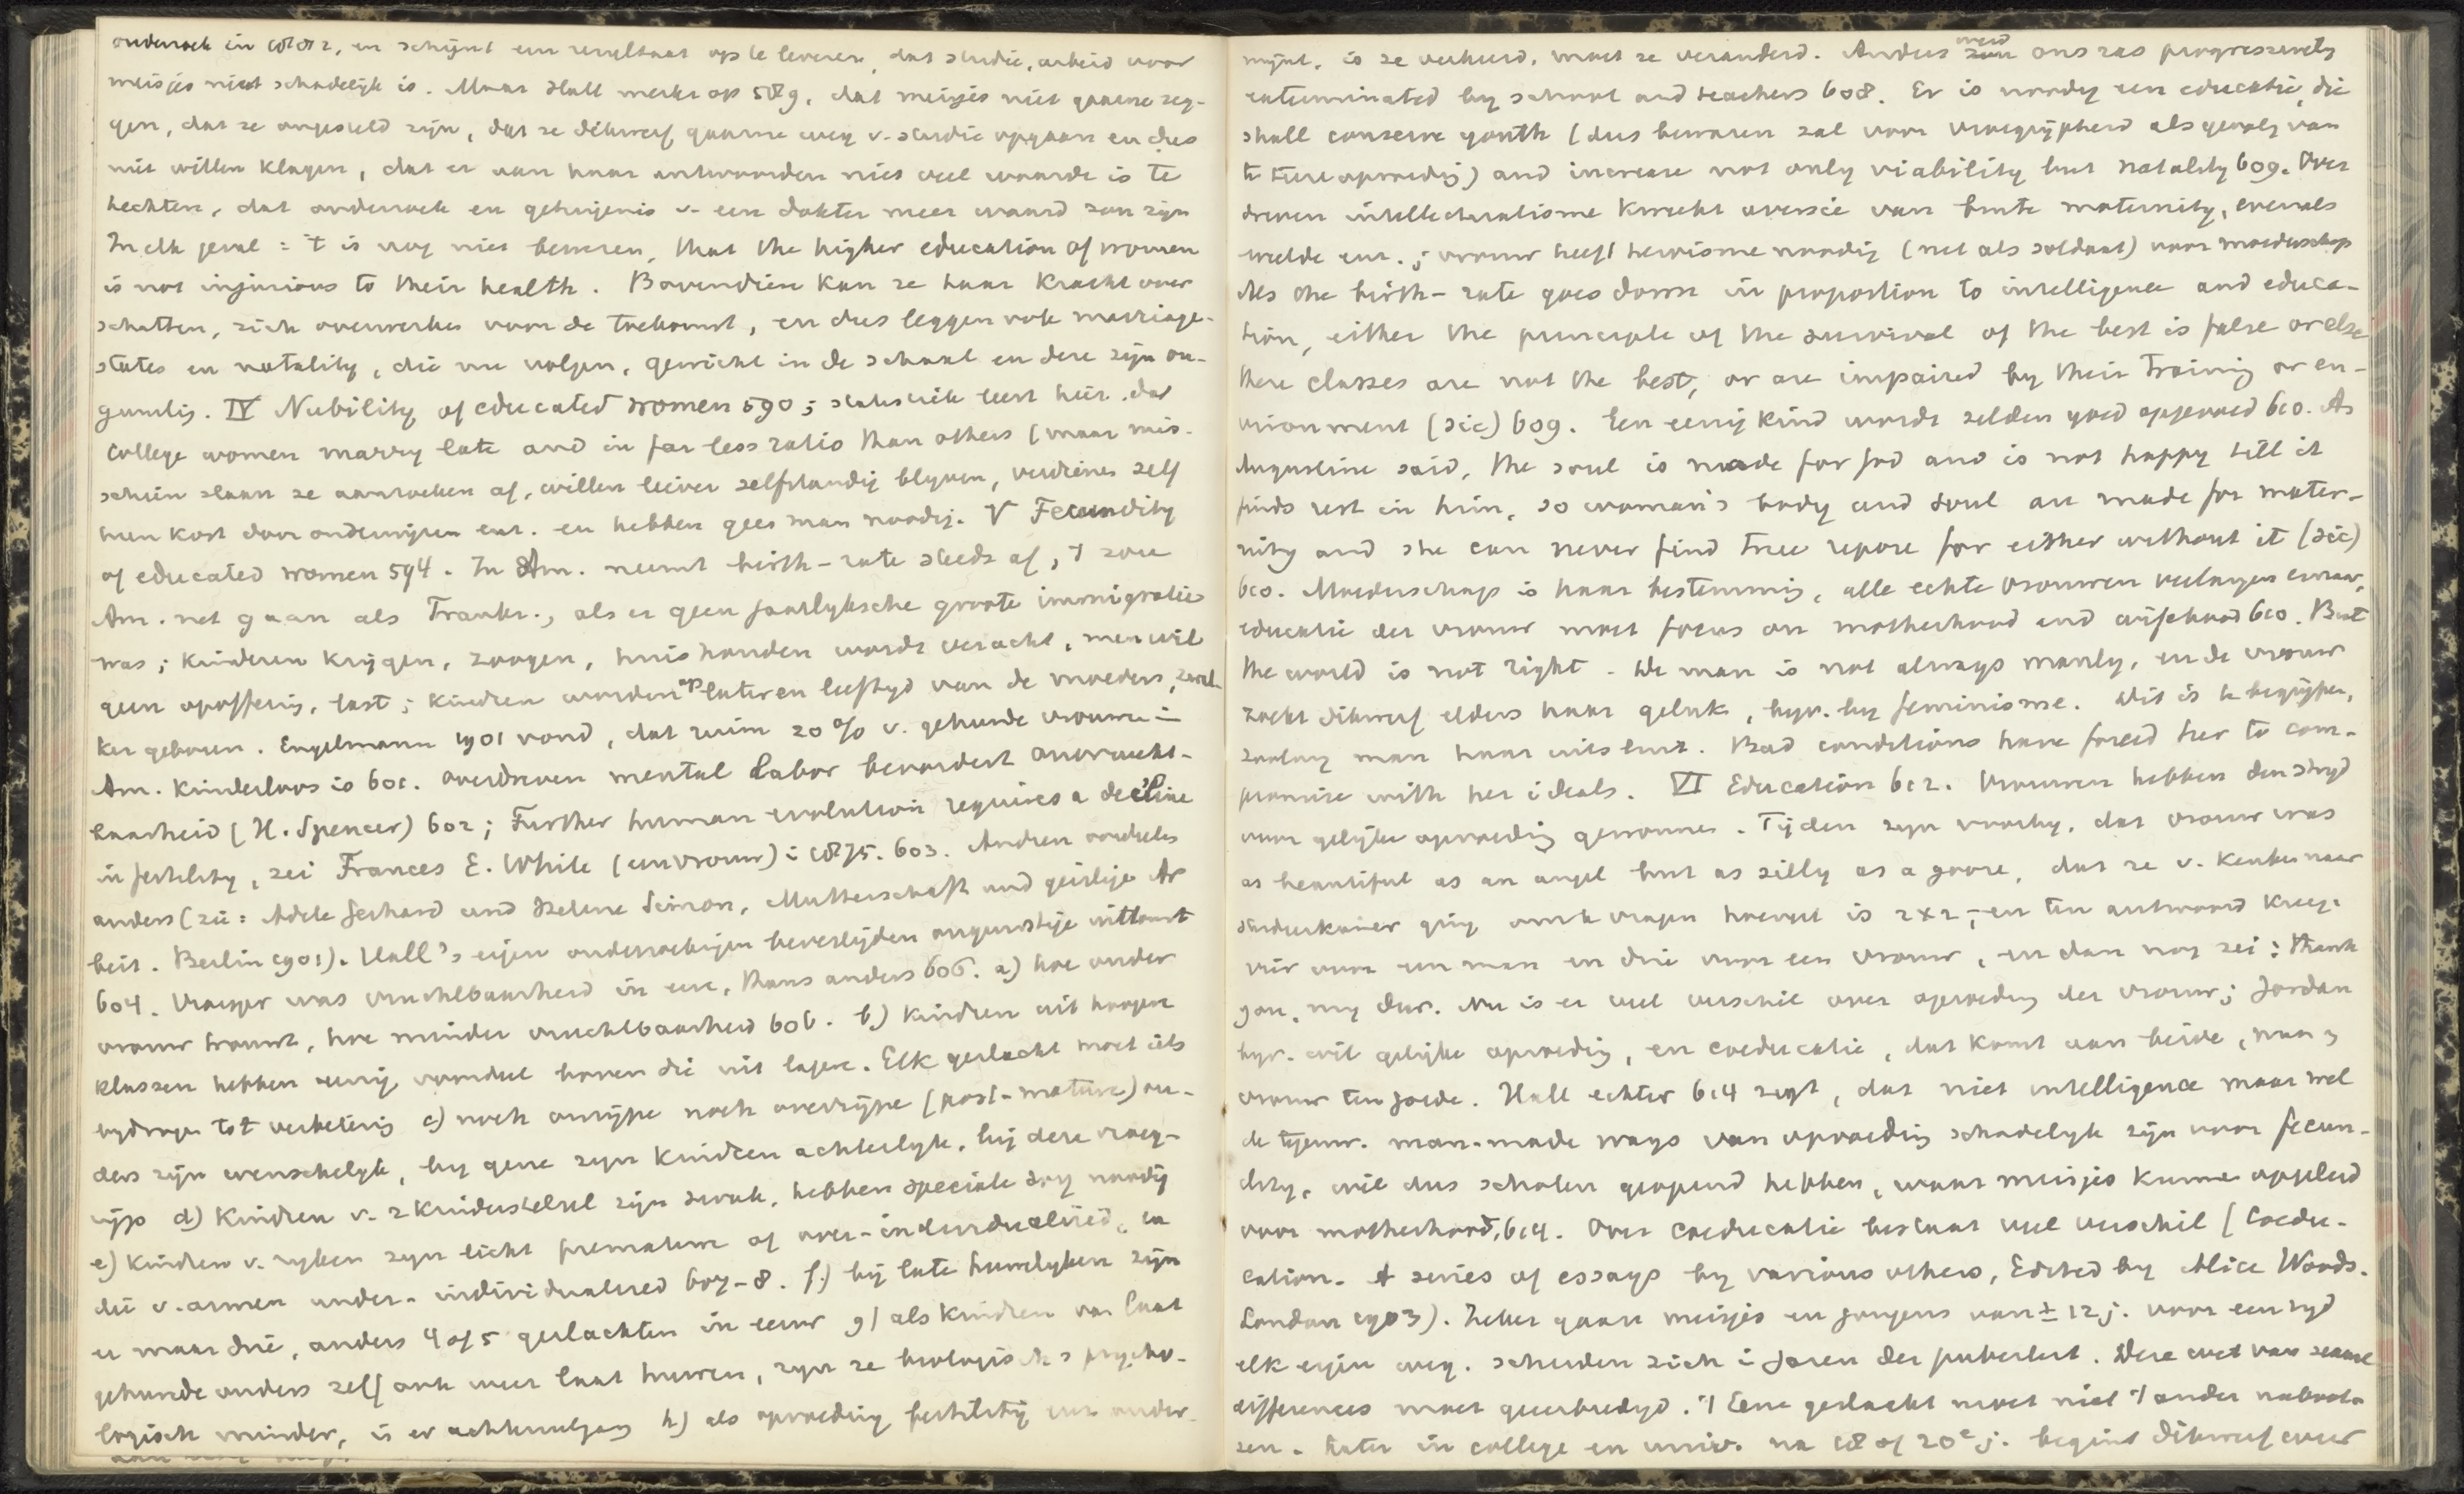 onderzoek in 1882, en schijnt een resultaat op te leveren, dat studie, arbeid voor
meisjes niet schadelijk is. Maar Hall merkt op 589, dat meisjes niet gaarne zeg-
gen, dat ze ongesteld zijn, dat ze dikwerf gaarne weg v. studie opgaan en dus
niet willen klagen, dat er aan haar antwoorden niet veel waarde is te
hechten, dat onderzoek en getuigenis v. een dokter meer waard zou zijn
In elk geval = 't is nog niet bewezen, that the higher education of women
is not injurious to their health. Bovendien kan ze haar kracht over
schatten, zich overwerken voor de toekomst, en dus leggen ook marriage-
states en natality, die nu volgen, gewicht in de schaal en deze zijn on-
gunstig. IV Nubility of educated women 590; statistiek leert hier. dat
College women marry late and in far less ratio than others (maar mis-
schien slaan ze aanzoeken af, willen liever zelfstandig blyven, verdienen zelf
hun kost door onderwijzen enz. en hebben geen man noodig. V Fecundity
of educated women 594. In Am. neemt birth-rate steeds af, 't zou
Am. net gaan als Frankr., als er geen jaarlyksche groote immigratie
was; kinderen krijgen, zoogen, huishouden wordt veracht, men wil
geen opoffering, last; kindren worden op lateren leeftyd van de moeders, zwak-
ker geboren. Engelmann 1901 vond, dat ruim 20% v. gehuwde vrouwen in
Am. kinderloos is 601. overdreven mental labor bevordert onvrucht-
baarheid (H. Spencer) 602; Further human evolution requires a decline
in fertility, zei Frances E. White (een vrouw) i 1875. 603. Andren oordeelen
anders (zie: Adele Gerhard und Helene Simon, Mutterschaft und geistige Ar
beit. Berlin 1901). Hall's eigen onderzoekingen bevestigden ongunstige uitkomst
604. Vroeger was vruchtbaarheid in eere, thans anders 606. a) hoe ouder
vrouw trouwt, hoe minder vruchtbaarheid 606. b) kindren uit hoogere
klassen hebben eenig voordeel boven die uit lagere. Elk geslacht moet iets
bydragen tot verbetering c) noch onrijpe noch overrijpe (post-mature) ou-
ders zijn wenschelyk, by gene zyn kindren achterlyk, bij deze vroeg-
rijp d) Kindren v. 2 kinderstelsel zijn zwak, hebben speciale zorg noodig
e) kindren v. ryken zyn licht premature of over-individualised, en
die v. armen under-individualised 607-8. f) bij late huwelyken zijn
er maar drie, anders 4 of 5 geslachten in eeuw g) als kindren van laat
gehuwde ouders zelf ook weer laat huwen, zyn ze biologisch en psycho-
logisch minder, is er achteruitgang h) als opvoeding fertility enz. onder-
mijnt, is ze verkeerd, moet ze veranderd. Anders werd ons ras progressively
exterminated by school and teachers 608. Er is noodig een educatie, die
shall conserve youth (dus bewaren zal voor vroegrijpheid als gevolg van
te teere opvoeding) and increase not only viability but natality 609. Over
dreven intellectualisme kweekt aversie van brute maternity, evenals
weelde enz.; vrouw heeft heroisme noodig (net als soldaat) voor moederschap
As the birth-rate goes down in proportion to intelligence and educa-
tion, either the principle of the survival of the best is false or else
these classes are not the best, or are impaired by their training or en-
vironment (sic) 609. Een eenig kind wordt zelden goed opgevoed 610. As
Augustine said, the soul is made for God and is not happy till it
finds rest in him, so woman's body and soul are made for mater-
nity and she can never find true repose for either without it (sic)
610. Moederschap is haar bestemming, alle echte vrouwen verlangen ernaar,
educatie der vrouw moet focus on motherhood and wifehood 610. But
the world is not right. De man is not always manly, en de vrouw
zoekt dikwerf elders haar geluk, byv. by feminisme. Dit is te begrijpen,
zoolang man haar uitsluit. Bad conditions have forced her to com-
promise with her ideals. VI Education 612. Vrouwen hebben den stryd
voor gelijke opvoeding gewonnen. Tijden zyn voorby, dat vrouw was
as beautiful as an angel but as silly as a goose, dat ze v. keuken naar
studeerkamer ging om te vragen hoeveel is 2x2, en ten antwoord kreeg:
vier voor een man en drie voor een vrouw, en dan nog zei: thank
you, my dear. Nu is er veel verschil over opvoeding der vrouw; Jordan
byv. wil gelijke opvoeding, en coeducatie, dat komt aan beide, man en
vrouw ten goede. Hall echter 614 zegt, dat niet intelligence maar wel
de tegenw. man-made ways van opvoeding schadelyk zijn voor fecun-
dity, wil dus scholen geopend hebben, waar meisjes kunnen opgeleid
voor motherhood, 614. Over coeducatie bestaat veel verschil (Coedu-
cation. A series of essays by various others, Edited by Alice Woods.
London 1903). Zeker gaan meisjes en jongens van ± 12 j. voor een tyd
elk eigen weg. scheiden zich i jaren der puberteit. Deze wet van sexual
differences moet geeerbiedigd. 't Eene geslacht moet niet 't ander naboot-
sen. Later in college en univ. na 18 of 20e j. begint dikwerf weer